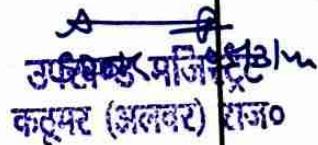 उपखण्ड मजिस्ट्रेट
कठूमर (अलवर) राज०